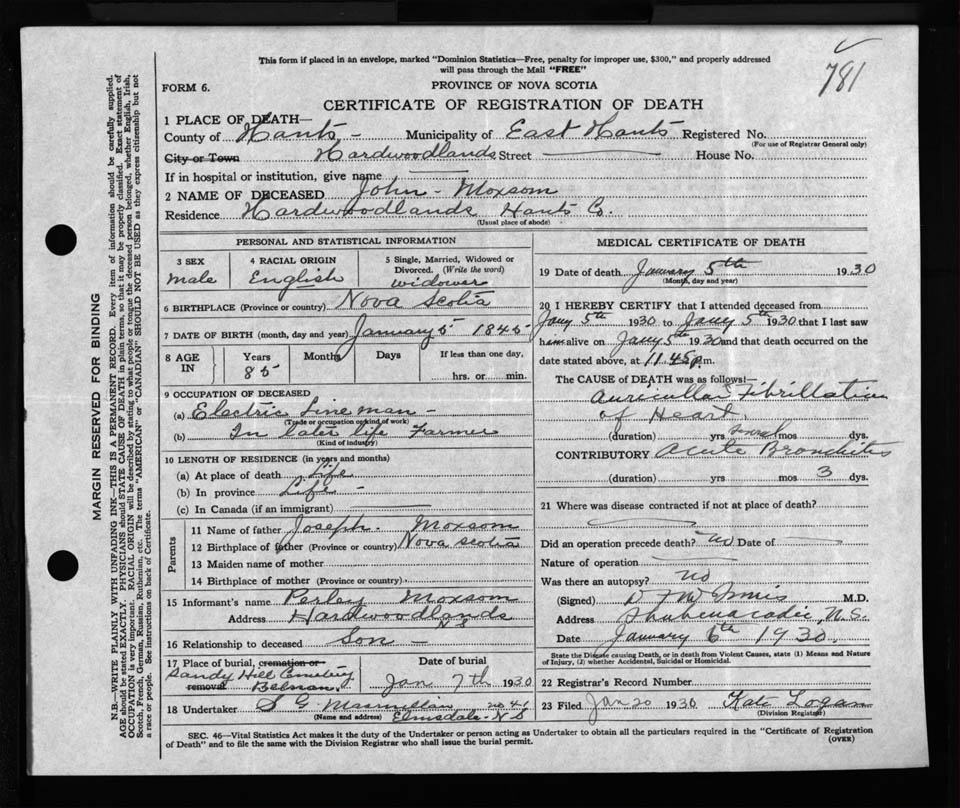 This form if placed in an envelope, marked "Dominion Statistics—Free, penalty for improper use, $300," and properly addressed
will pass through the Mail "FREE"
781
FORM 6.
PROVINCE OF NOVA SCOTIA
CERTIFICATE OF REGISTRATION OF DEATH
1 PLACE OF DEATH—
County of Hants - Municipality of East Hants Registered No.
(For use of Registrar General only)
City or Town Hardwoodlands Street House No.
If in hospital or institution, give name
2 NAME OF DECEASED John - Moxsom
Residence Hardwoodlands Hants Co.
(Usual place of abode)
PERSONAL AND STATISTICAL INFORMATION
3 SEX 4 RACIAL ORIGIN 5 Single, Married, Widowed or
Divorced. (Write the word)
male English widower
6 BIRTHPLACE (Province or Country) Nova Scotia
7 DATE OF BIRTH (month, day and year) January 5 1845
8 AGE IN Years Months Days If less than one day,
85 hrs. or min.
9 OCCUPATION OF DECEASED
(a) Electric Line man -
(Trade or occupation or kind of work)
(b) In later life Farmer
(Kind of industry)
10 LENGTH OF RESIDENCE (in years and months)
(a) At place of death Life
(b) In province Life -
(c) In Canada (if an immigrant)
Parents
11 Name of father Joseph. Moxsom
12 Birthplace of father (Province or country) Nova Scotia
13 Maiden name of mother
14 Birthplace of mother (Province or country)
15 Informant's name Perley Moxsom
Address Hardwoodlands
N S
16 Relationship to deceased Son -
17 Place of burial, cremation or Date of burial
Sandy Hill Cemetery
removal Jan 7th 1930
18 Undertaker S G Macmillan
(Name and address) Elmsdale - N S
MEDICAL CERTIFICATE OF DEATH
19 Date of death January 5th 1930
(Month, day and year)
20 I HEREBY CERTIFY that I attended deceased from
Jany 5th 1930 to Jany 5th 1930 that I last saw
him alive on Jany 5th 1930 and that death occurred on the
date stated above, at 11.45 p.m.
The CAUSE of DEATH was as follows:—
Auricullar Fibrillation
of Heart.
(duration) yrs several mos dys.
CONTRIBUTORY Acute Bronchitis
(duration) yrs mos 3 dys.
21 Where was disease contracted if not at place of death?
Did an operation precede death? no Date of
Nature of operation
Was there an autopsy? no
(Signed) M.D.
Address Shubenacadie, N.S.
Date January 6th 1930.
State the Disease causing Death, or in death from Violent Causes, state (1) Means and Nature
of Injury, (2) whether Accidental, Suicidal or Homicidal.
22 Registrar's Record Number
23 Filed Jan 20 1930 Kate Logan
(Division Registrar)
SEC. 46—Vital Statistics Act makes it the duty of the Undertaker or person acting as Undertaker to obtain all the particulars required in the "Certificate of Registration
of Death" and to file the same with the Division Registrar who shall issue the burial permit.
(OVER)
MARGIN RESERVED FOR BINDING
N.B.—WRITE PLAINLY WITH UNFADING INK—THIS IS A PERMANENT RECORD. Every item of information should be carefully supplied.
AGE should be stated EXACTLY. PHYSICIANS should STATE CAUSE OF DEATH in plain terms, so that it may be properly classified. Exact statement of
OCCUPATION is very important. RACIAL ORIGIN will be described by stating to what people or tongue the deceased person belonged, whether English, Irish,
Scotch, French, German, Russian, Ruthenian, etc. The terms "AMERICAN" or "CANADIAN" SHOULD NOT BE USED as they express citizenship but not
a race or people. See instructions on back of Certificate.